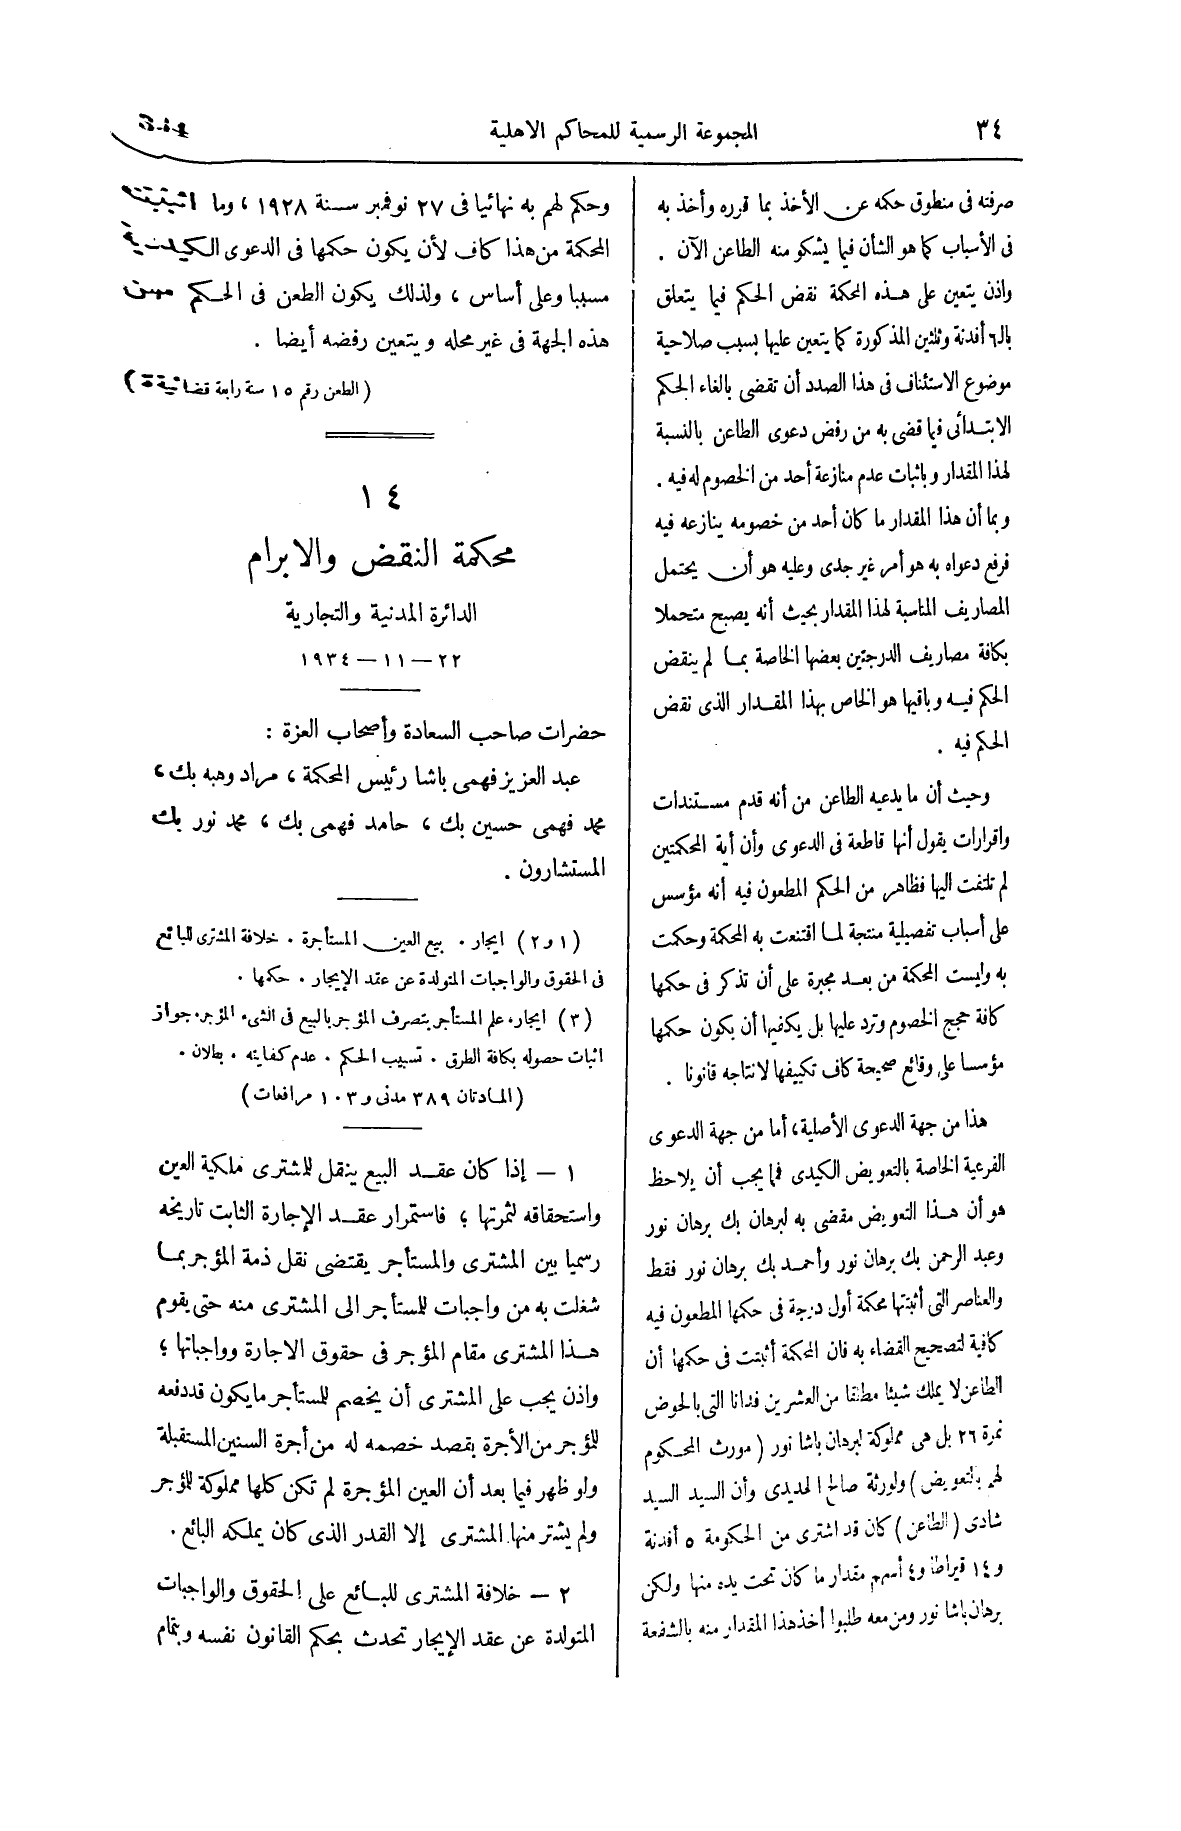 ٣٤
المجموعة الرسمية للمحاكم الاهلية
صرفته فى منطوق حكمه عن الأخذ بما قرره وأخذ به
فى الأسباب كما هو الشأن فيما يشكو منه الطاعن الآن .
واذن يتعين على هذه المحكمة نقض الحكم فيما يتعلق
بالـ٦ أفدنة وثلثين المذكورة كما يتعين عليها بسبب صلاحية
موضوع الاستئناف فى هذا الصدد أن تقضى بالغاء الحكم
الابتدائى فيما قضى به من رفض دعوى الطاعن بالنسبة
لهذا المقدار وباثبات عدم منازعة أحد من الخصوم له فيه .
وبما أن هذا المقدار ما كان أحد من خصومه ينازعه فيه
فرفع دعواه به هو أمر غير جدى وعليه هو أن يحتمل
المصاريف المناسبة لهذا المقدار بحيث أنه يصبح متحملا
بكافة مصاريف الدرجتين بعضها الخاصة بما لم ينقض
الحكم فيه وباقيها هو الخاص بهذا المقدار الذى نقض
الحكم فيه .
وحيث أن ما يدعيه الطاعن من أنه قدم مستندات
واقرارات يقول أنها قاطعة فى الدعوى وأن أية المحكمتين
لم تلتفت اليها فظاهر من الحكم المطعون فيه أنه مؤسس
على أسباب تفصيلية منتجة لما اقتنعت به المحكمة وحكمت
به وليست المحكمة من بعد مجبرة على أن تذكر فى حكمها
كافة حجج الخصوم وترد عليها بل يكفيها أن يكون حكمها
مؤسسا على وقائع صحيحة كاف تكييفها لانتاجه قانونا .
هذا من جهة الدعوى الأصلية، أما من جهة الدعوى
الفرعية الخاصة بالتعويض الكيدى فما يجب أن يلاحظ
هو أن هذا التعويض مقضى به لبرهان بك برهان نور
وعبد الرحمن بك برهان نور وأحمد بك برهان نور فقط
والعناصر التى أثبتتها محكمة أول درجة فى حكمها المطعون فيه
كافية لتصحيح القضاء به فان المحكمة أثبتت فى حكمها أن
الطاعن لا يملك شيئا مطلقا من العشرين فدانا التى بالحوض
نمرة ٢٦ بل هى مملوكة لبرهان باشا نور (مورث المحكوم
لهم بالتعويض) ولورثة صالح الحديدى وأن السيد السيد
شادى (الطاعن) كان قد اشترى من الحكومة ٥ أفدنة
و١٤ قيراطا و٤ أسهم مقدار ما كان تحت يده منها ولكن
برهان باشا نور ومن معه طلبوا أخذ هذا المقدار منه بالشفعة
وحكم لهم به نهائيا فى ٢٧ نوفمبر سنة ١٩٢٨ ، وما اثبتته
المحكمة من هذا كاف لأن يكون حكمها فى الدعوى الكيدية
مسببا وعلى أساس ، ولذلك يكون الطعن فى الحكم من
هذه الجهة فى غير محله ويتعين رفضه أيضا .
(الطعن رقم ١٥ سنة رابعة قضائية)
١٤
محكمة النقض والابرام
الدائرة المدنية والتجارية
٢٢ — ١١ — ١٩٣٤
حضرات صاحب السعادة وأصحاب العزة :
عبد العزيز فهمى باشا رئيس المحكمة ، مراد وهبه بك ،
محمد فهمى حسين بك ، حامد فهمى بك ، محمد نور بك
المستشارون .
(١ و ٢) ايجار . بيع العين المستأجرة . خلافة المشترى للبائع
فى الحقوق والواجبات المتولدة عن عقد الإيجار . حكمها .
(٣) ايجار . علم المستأجر بتصرف المؤجر بالبيع فى الشىء المؤجر . جواز
اثبات حصوله بكافة الطرق . تسبيب الحكم . عدم كفايته . بطلان .
(المادتان ٣٨٩ مدنى و ١٠٣ مرافعات)
١ — إذا كان عقد البيع ينقل للمشترى ملكية العين
واستحقاقه لثمرتها ؛ فاستمرار عقد الإجارة الثابت تاريخه
رسميا بين المشترى والمستأجر يقتضى نقل ذمة المؤجر بما
شغلت به من واجبات للمستأجر الى المشترى منه حتى يقوم
هذا المشترى مقام المؤجر فى حقوق الاجارة وواجباتها ؛
واذن يجب على المشترى أن يخصم للمستأجر ما يكون قد دفعه
للمؤجر من الأجرة بقصد خصمه له من أجرة السنين المستقبلة
ولو ظهر فيما بعد أن العين المؤجرة لم تكن كلها مملوكة للمؤجر
ولم يشتر منها المشترى إلا القدر الذى كان يملكه البائع .
٢ — خلافة المشترى للبائع على الحقوق والواجبات
المتولدة عن عقد الإيجار تحدث بحكم القانون نفسه وبتمام